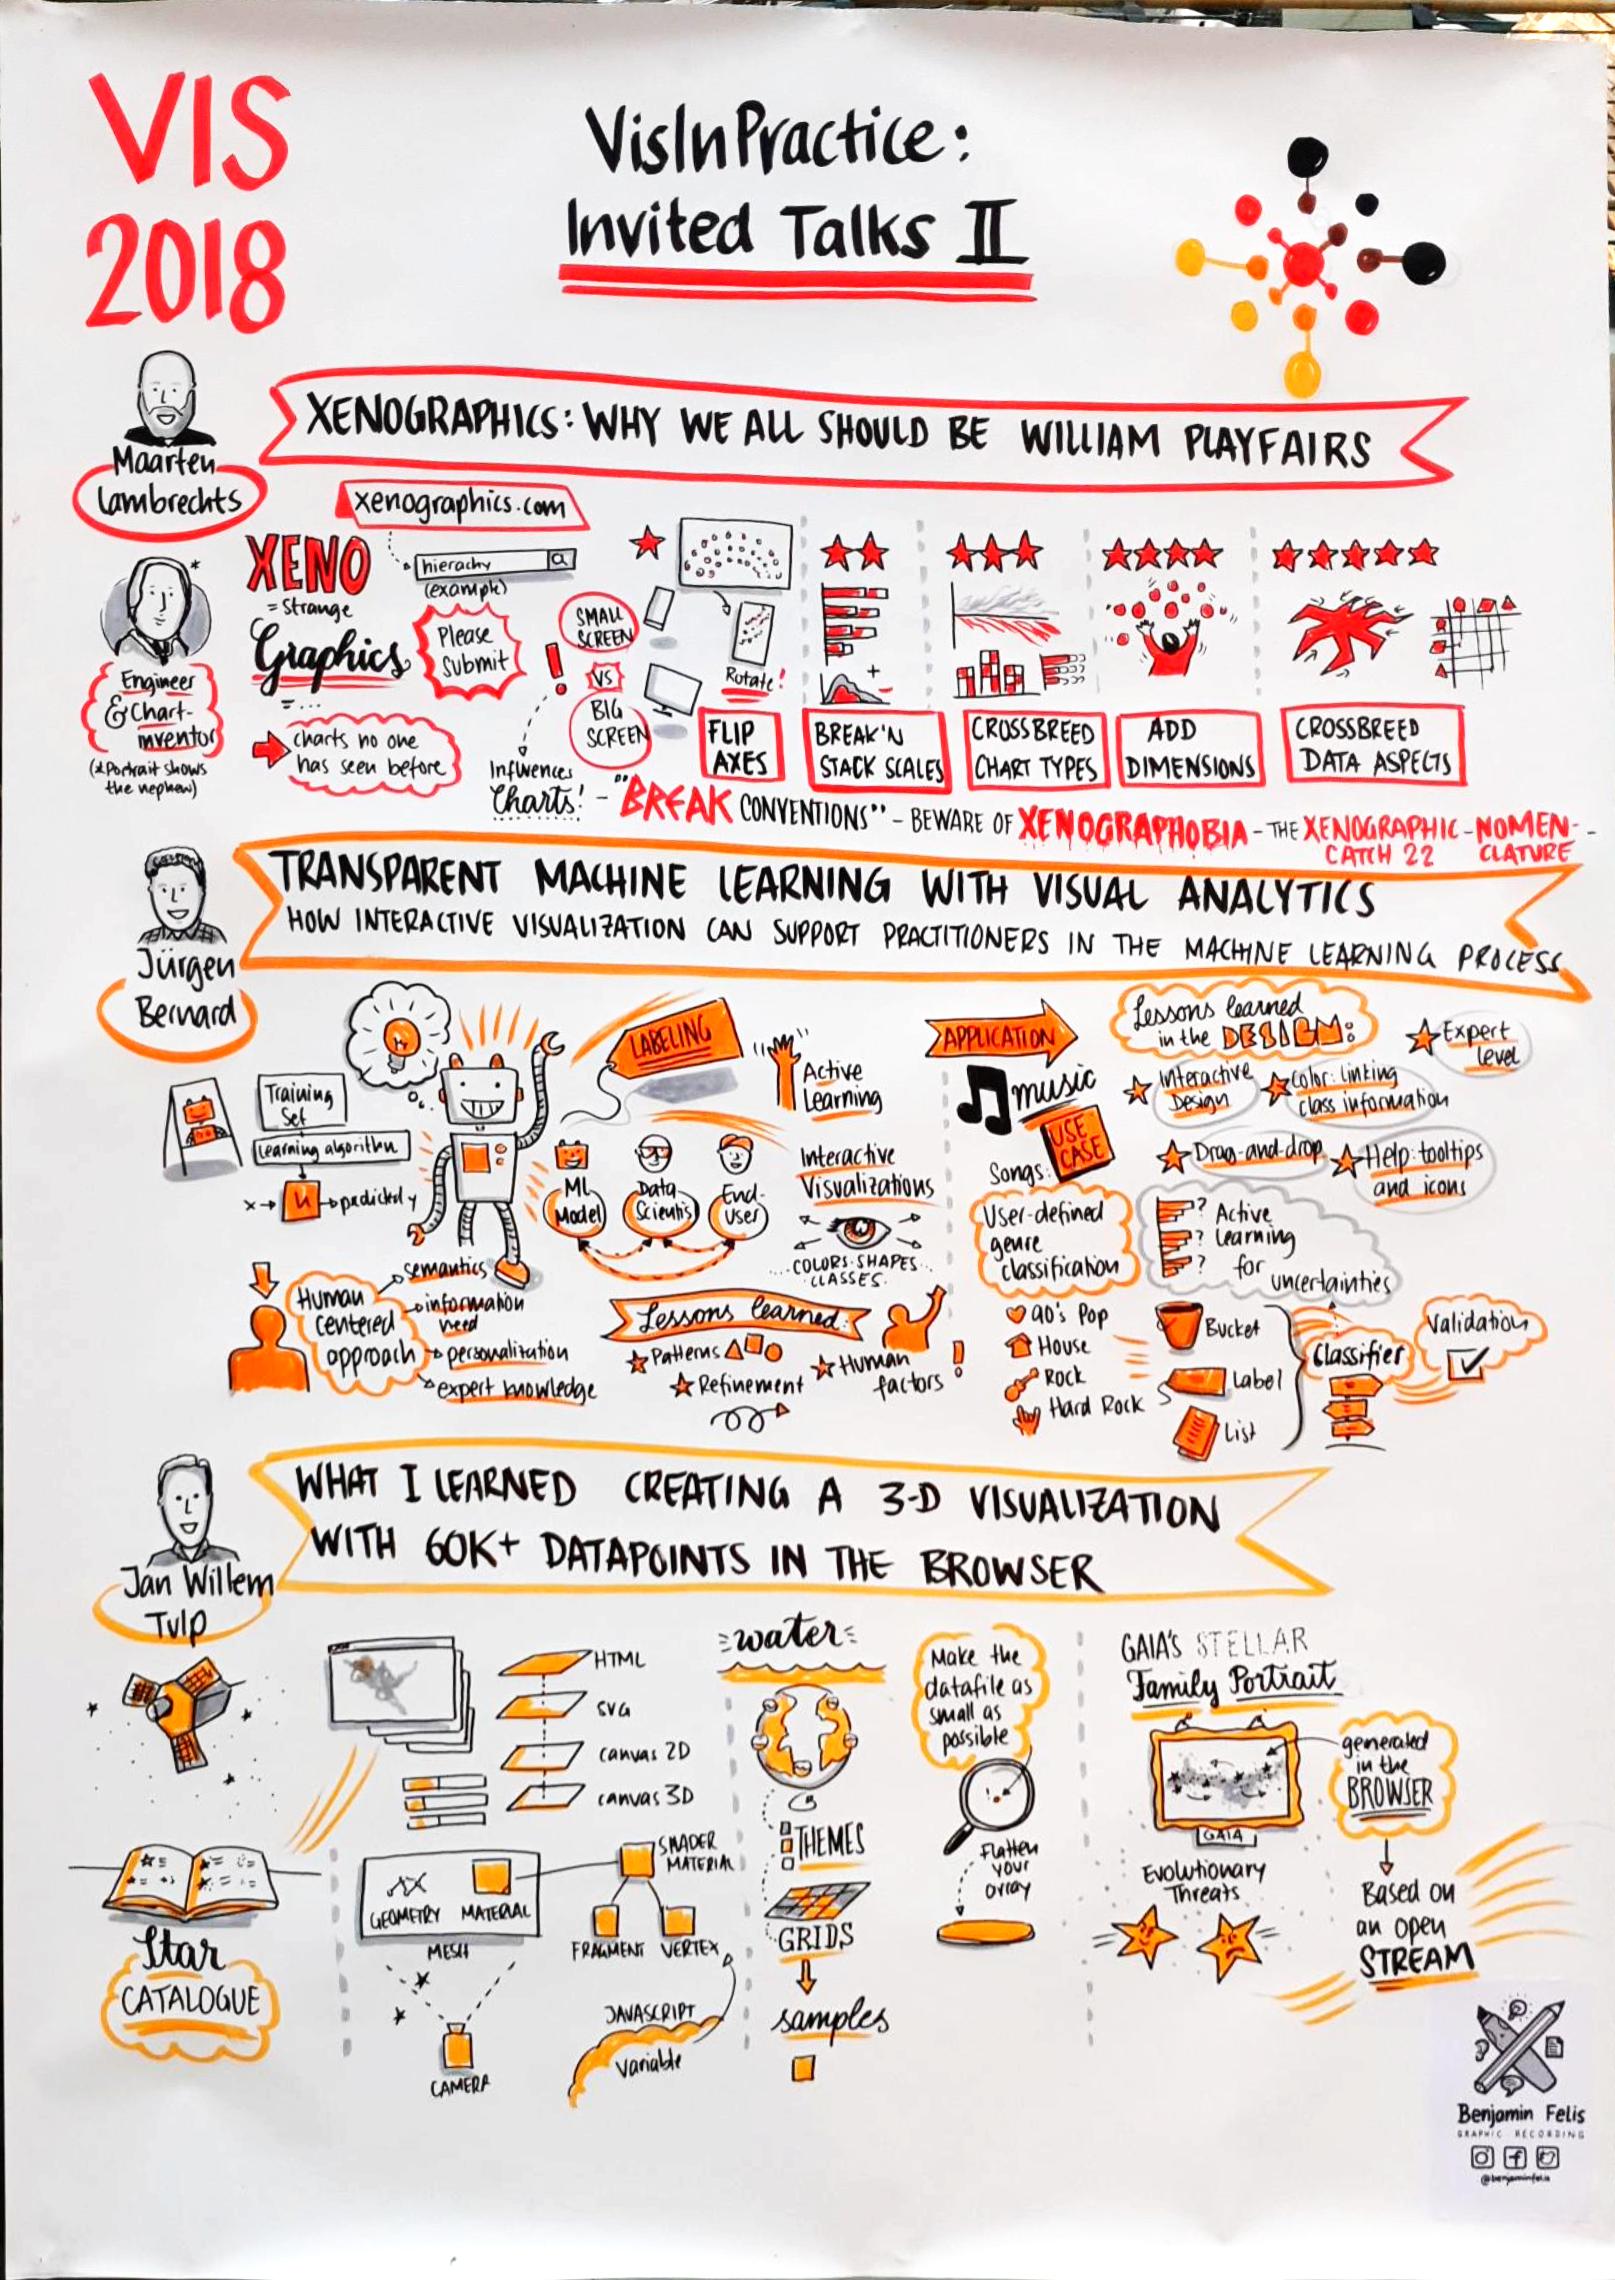 VIS
2018
VisInPractice:
Invited Talks II
Maarten
Lambrechts
XENOGRAPHICS: WHY WE ALL SHOULD BE WILLIAM PLAYFAIRS
xenographics.com
*
Engineer
& Chart-
inventor
(*Portrait shows
the nephew)
XENO
= Strange
Graphics
= ...
charts no one
has seen before
hierachy
(example)
Please
Submit
!
Influences
Charts!
SMALL
SCREEN
VS
BIG
SCREEN
Rotate!
FLIP
AXES
BREAK'N
STACK SCALES
CROSSBREED
CHART TYPES
ADD
DIMENSIONS
CROSSBREED
DATA ASPECTS
- "BREAK CONVENTIONS" - BEWARE OF XENOGRAPHOBIA - THE XENOGRAPHIC - NOMEN-
CATCH 22
CLATURE
Jürgen
Bernard
TRANSPARENT MACHINE LEARNING WITH VISUAL ANALYTICS
HOW INTERACTIVE VISUALIZATION CAN SUPPORT PRACTITIONERS IN THE MACHINE LEARNING PROCESS
Training
Set
Learning algorithm
x → u → predicted y
Human
centered
approach
semantics
information
need
personalization
expert knowledge
LABELING
Active
Learning
ML
Model
Data
Scientist
End-
User
Interactive
Visualizations
COLORS·SHAPES
CLASSES
Lessons learned:
Patterns
Refinement
Human
factors
!
APPLICATION
music
USE
CASE
Songs:
User-defined
genre
classification
90's Pop
House
Rock
Hard Rock
Lessons learned
in the DESIGN:
Expert
level
Interactive
Design
Color: linking
class information
Drag-and-drop
Help: tooltips
and icons
? Active
? learning
? for
uncertainties
Bucket
Label
List
Classifier
Validation
Jan Willem
Tulp
WHAT I LEARNED CREATING A 3-D VISUALIZATION
WITH 60K+ DATAPOINTS IN THE BROWSER
Star
CATALOGUE
HTML
SVG
canvas 2D
canvas 3D
GEOMETRY MATERIAL
MESH
CAMERA
SHADER
MATERIAL
FRAGMENT VERTEX
JAVASCRIPT
variable
water
THEMES
GRIDS
samples
Make the
datafile as
small as
possible
Flatten
your
array
GAIA'S STELLAR
Family Portrait
GAIA
generated
in the
BROWSER
Evolutionary
Threats
Based on
an open
STREAM
Benjamin Felis
GRAPHIC RECORDING
@benjaminfelis